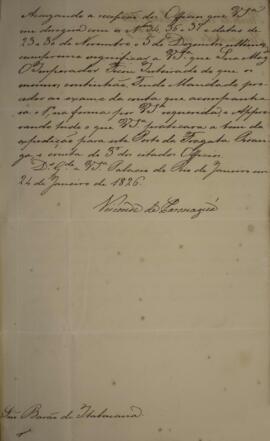 Accusando a recepção dos Officios que V.S.ª
me dirigio com os N.os 34, 35 e 37 e datas de
23 e 30 de Novembro e 3 de Dezembro ultimo,
cumpre-me significar a V.S.ª que Sua Mag.
O Imperador Ficou Inteirado do que os
mesmos continhão, Tendo Mandado proce-
der ao exame da conta que acompanha-
va o 1.º, na forma por V.S.ª requerida, e Appro-
vando tudo o que V.S.ª praticara a bem da
expedição para este Porto da Fragata Piran-
ga e consta do 3.º dos citados Officios.
D.s G.de a V.S.ª Palacio do Rio de Janeiro em
24 de Janeiro de 1826.
Visconde de Paranaguá
Snr. Barão de Itabaiana